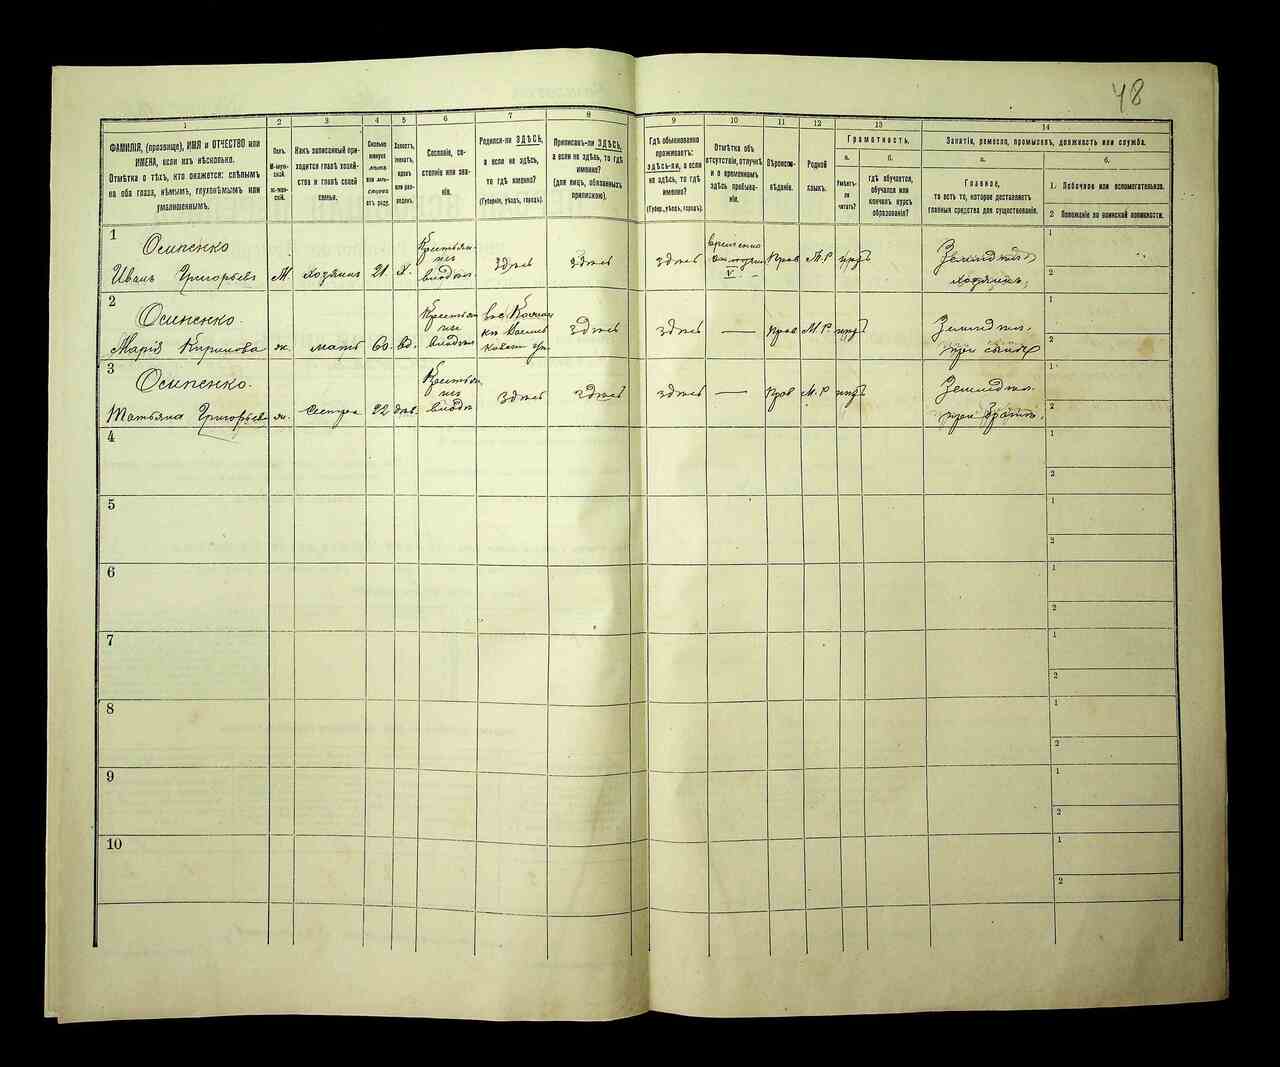 48
1
2
3
4
5
6
7
8
9
10
11
12
13
14
ФАМИЛІЯ, (прозвище), ИМЯ и ОТЧЕСТВО или
ИМЕНА, если ихъ нѣсколько.
Отмѣтка о тѣхъ, кто окажется: слѣпымъ
на оба глаза, нѣмымъ, глухонѣмымъ или
умалишеннымъ.
Полъ.
М-муж-
ской.
Ж-жен-
скій.
Какъ записанный при-
ходится главѣ хозяй-
ства и главѣ своей
семьи.
Сколько
минуло
лѣтъ
или мѣ-
сяцевъ
отъ роду.
Холостъ,
женатъ,
вдовъ
или раз-
веденъ.
Сословіе, со-
стояніе или зва-
ніе.
Родился-ли ЗДѢСЬ,
а если не здѣсь,
то гдѣ именно?
(Губернія, уѣздъ, городъ).
Приписанъ-ли ЗДѢСЬ,
а если не здѣсь, то гдѣ
именно?
(для лицъ, обязанныхъ
припискою).
Гдѣ обыкновенно
проживаетъ:
здѣсь-ли, а если
не здѣсь, то гдѣ
именно?
(Губер., уѣздъ, городъ).
Отмѣтка объ
отсутствіи, отлучкѣ
и о временномъ
здѣсь пребыва-
ніи.
Вѣроиспо-
вѣданіе.
Родной
языкъ.
Грамотность.
а.
Умѣетъ-
ли
читать?
б.
гдѣ обучается,
обучался или
кончилъ курсъ
образованія?
Занятіе, ремесло, промыселъ, должность или служба.
а.
Главное,
то есть то, которое доставляетъ
главныя средства для существованія.
б.
1. Побочное или вспомогательное.
2 Положеніе по воинской повинности.
1
Осипенко
Иванъ Григорьевъ
М.
хозяинъ
21
х.
Крестьян
здѣсь
здѣсь
здѣсь
временно
V
Прав
М.Р
Земледѣл
хозяинъ
1
2
2
Осипенко.
Марія
ж.
мать
60.
вд.
здѣсь
здѣсь
—
Прав
М.Р.
Земледѣл.
при сынѣ
1
2
3
Осипенко.
Татьяна Григорьев
ж.
Сестра
22
дѣв.
здѣсь
здѣсь
здѣсь
—
Прав
М.Р
Земледѣл.
при братѣ.
1
2
4
1
2
5
1
2
6
1
2
7
1
2
8
1
2
9
1
2
10
1
2